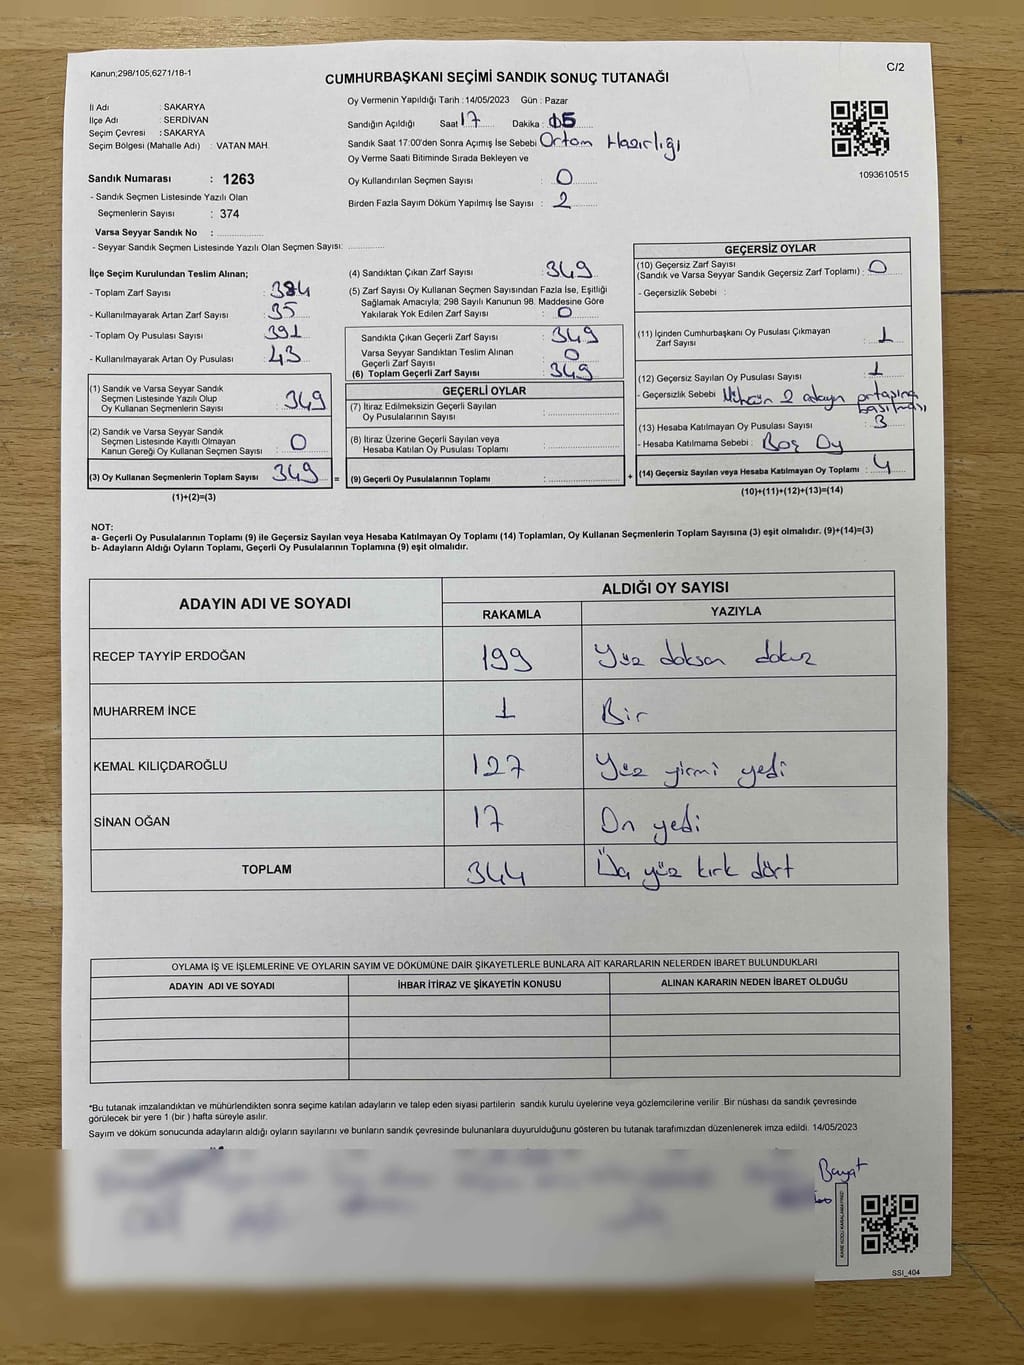 Kanun;298/105;6271/18-1
C/2
CUMHURBAŞKANI SEÇİMİ SANDIK SONUÇ TUTANAĞI
İl Adı : SAKARYA
İlçe Adı : SERDİVAN
Seçim Çevresi : SAKARYA
Seçim Bölgesi (Mahalle Adı) : VATAN MAH.
Sandık Numarası : 1263
- Sandık Seçmen Listesinde Yazılı Olan
Seçmenlerin Sayısı : 374
Varsa Seyyar Sandık No :
- Seyyar Sandık Seçmen Listesinde Yazılı Olan Seçmen Sayısı:
Oy Vermenin Yapıldığı Tarih :14/05/2023 Gün : Pazar
Sandığın Açıldığı Saat 17 Dakika : 05
Sandık Saat 17:00'den Sonra Açımış İse Sebebi Ortam Hazırlığı
Oy Verme Saati Bitiminde Sırada Bekleyen ve
Oy Kullandırılan Seçmen Sayısı : 0
Birden Fazla Sayım Döküm Yapılmış İse Sayısı : 2
1093610515
İlçe Seçim Kurulundan Teslim Alınan;
- Toplam Zarf Sayısı : 384
- Kullanılmayarak Artan Zarf Sayısı : 35
- Toplam Oy Pusulası Sayısı : 391
- Kullanılmayarak Artan Oy Pusulası : 43
(1) Sandık ve Varsa Seyyar Sandık
Seçmen Listesinde Yazılı Olup
Oy Kullanan Seçmenlerin Sayısı : 349
(2) Sandık ve Varsa Seyyar Sandık
Seçmen Listesinde Kayıtlı Olmayan
Kanun Gereği Oy Kullanan Seçmen Sayısı : 0
(3) Oy Kullanan Seçmenlerin Toplam Sayısı : 349 =
(1)+(2)=(3)
(4) Sandıktan Çıkan Zarf Sayısı : 349
(5) Zarf Sayısı Oy Kullanan Seçmen Sayısından Fazla İse, Eşitliği
Sağlamak Amacıyla; 298 Sayılı Kanunun 98. Maddesine Göre
Yakılarak Yok Edilen Zarf Sayısı : 0
Sandıkta Çıkan Geçerli Zarf Sayısı : 349
Varsa Seyyar Sandıktan Teslim Alınan
Geçerli Zarf Sayısı : 0
(6) Toplam Geçerli Zarf Sayısı : 349
GEÇERLİ OYLAR
(7) İtiraz Edilmeksizin Geçerli Sayılan
Oy Pusulalarının Sayısı :
(8) İtiraz Üzerine Geçerli Sayılan veya
Hesaba Katılan Oy Pusulası Toplamı :
(9) Geçerli Oy Pusulalarının Toplamı : +
GEÇERSİZ OYLAR
(10) Geçersiz Zarf Sayısı
(Sandık ve Varsa Seyyar Sandık Geçersiz Zarf Toplamı) : 0
- Geçersizlik Sebebi :
(11) İçinden Cumhurbaşkanı Oy Pusulası Çıkmayan
Zarf Sayısı : 1
(12) Geçersiz Sayılan Oy Pusulası Sayısı : 1
- Geçersizlik Sebebi Mührün 2 adayın ortasına
basılması
(13) Hesaba Katılmayan Oy Pusulası Sayısı : 3
- Hesaba Katılmama Sebebi : Boş Oy
(14) Geçersiz Sayılan veya Hesaba Katılmayan Oy Toplamı : 4
(10)+(11)+(12)+(13)=(14)
NOT:
a- Geçerli Oy Pusulalarının Toplamı (9) ile Geçersiz Sayılan veya Hesaba Katılmayan Oy Toplamı (14) Toplamları, Oy Kullanan Seçmenlerin Toplam Sayısına (3) eşit olmalıdır. (9)+(14)=(3)
b- Adayların Aldığı Oyların Toplamı, Geçerli Oy Pusulalarının Toplamına (9) eşit olmalıdır.
ADAYIN ADI VE SOYADI
ALDIĞI OY SAYISI
RAKAMLA YAZIYLA
RECEP TAYYİP ERDOĞAN 199 Yüz doksan dokuz
MUHARREM İNCE 1 Bir
KEMAL KILIÇDAROĞLU 127 Yüz yirmi yedi
SİNAN OĞAN 17 On yedi
TOPLAM 344 Üç yüz kırk dört
OYLAMA İŞ VE İŞLEMLERİNE VE OYLARIN SAYIM VE DÖKÜMÜNE DAİR ŞİKAYETLERLE BUNLARA AİT KARARLARIN NELERDEN İBARET BULUNDUKLARI
ADAYIN ADI VE SOYADI İHBAR İTİRAZ VE ŞİKAYETİN KONUSU ALINAN KARARIN NEDEN İBARET OLDUĞU
*Bu tutanak imzalandıktan ve mühürlendikten sonra seçime katılan adayların ve talep eden siyasi partilerin sandık kurulu üyelerine veya gözlemcilerine verilir .Bir nüshası da sandık çevresinde
görülecek bir yere 1 (bir ) hafta süreyle asılır.
Sayım ve döküm sonucunda adayların aldığı oyların sayılarını ve bunların sandık çevresinde bulunanlara duyurulduğunu gösteren bu tutanak tarafımızdan düzenlenerek imza edildi. 14/05/2023
SSI_404